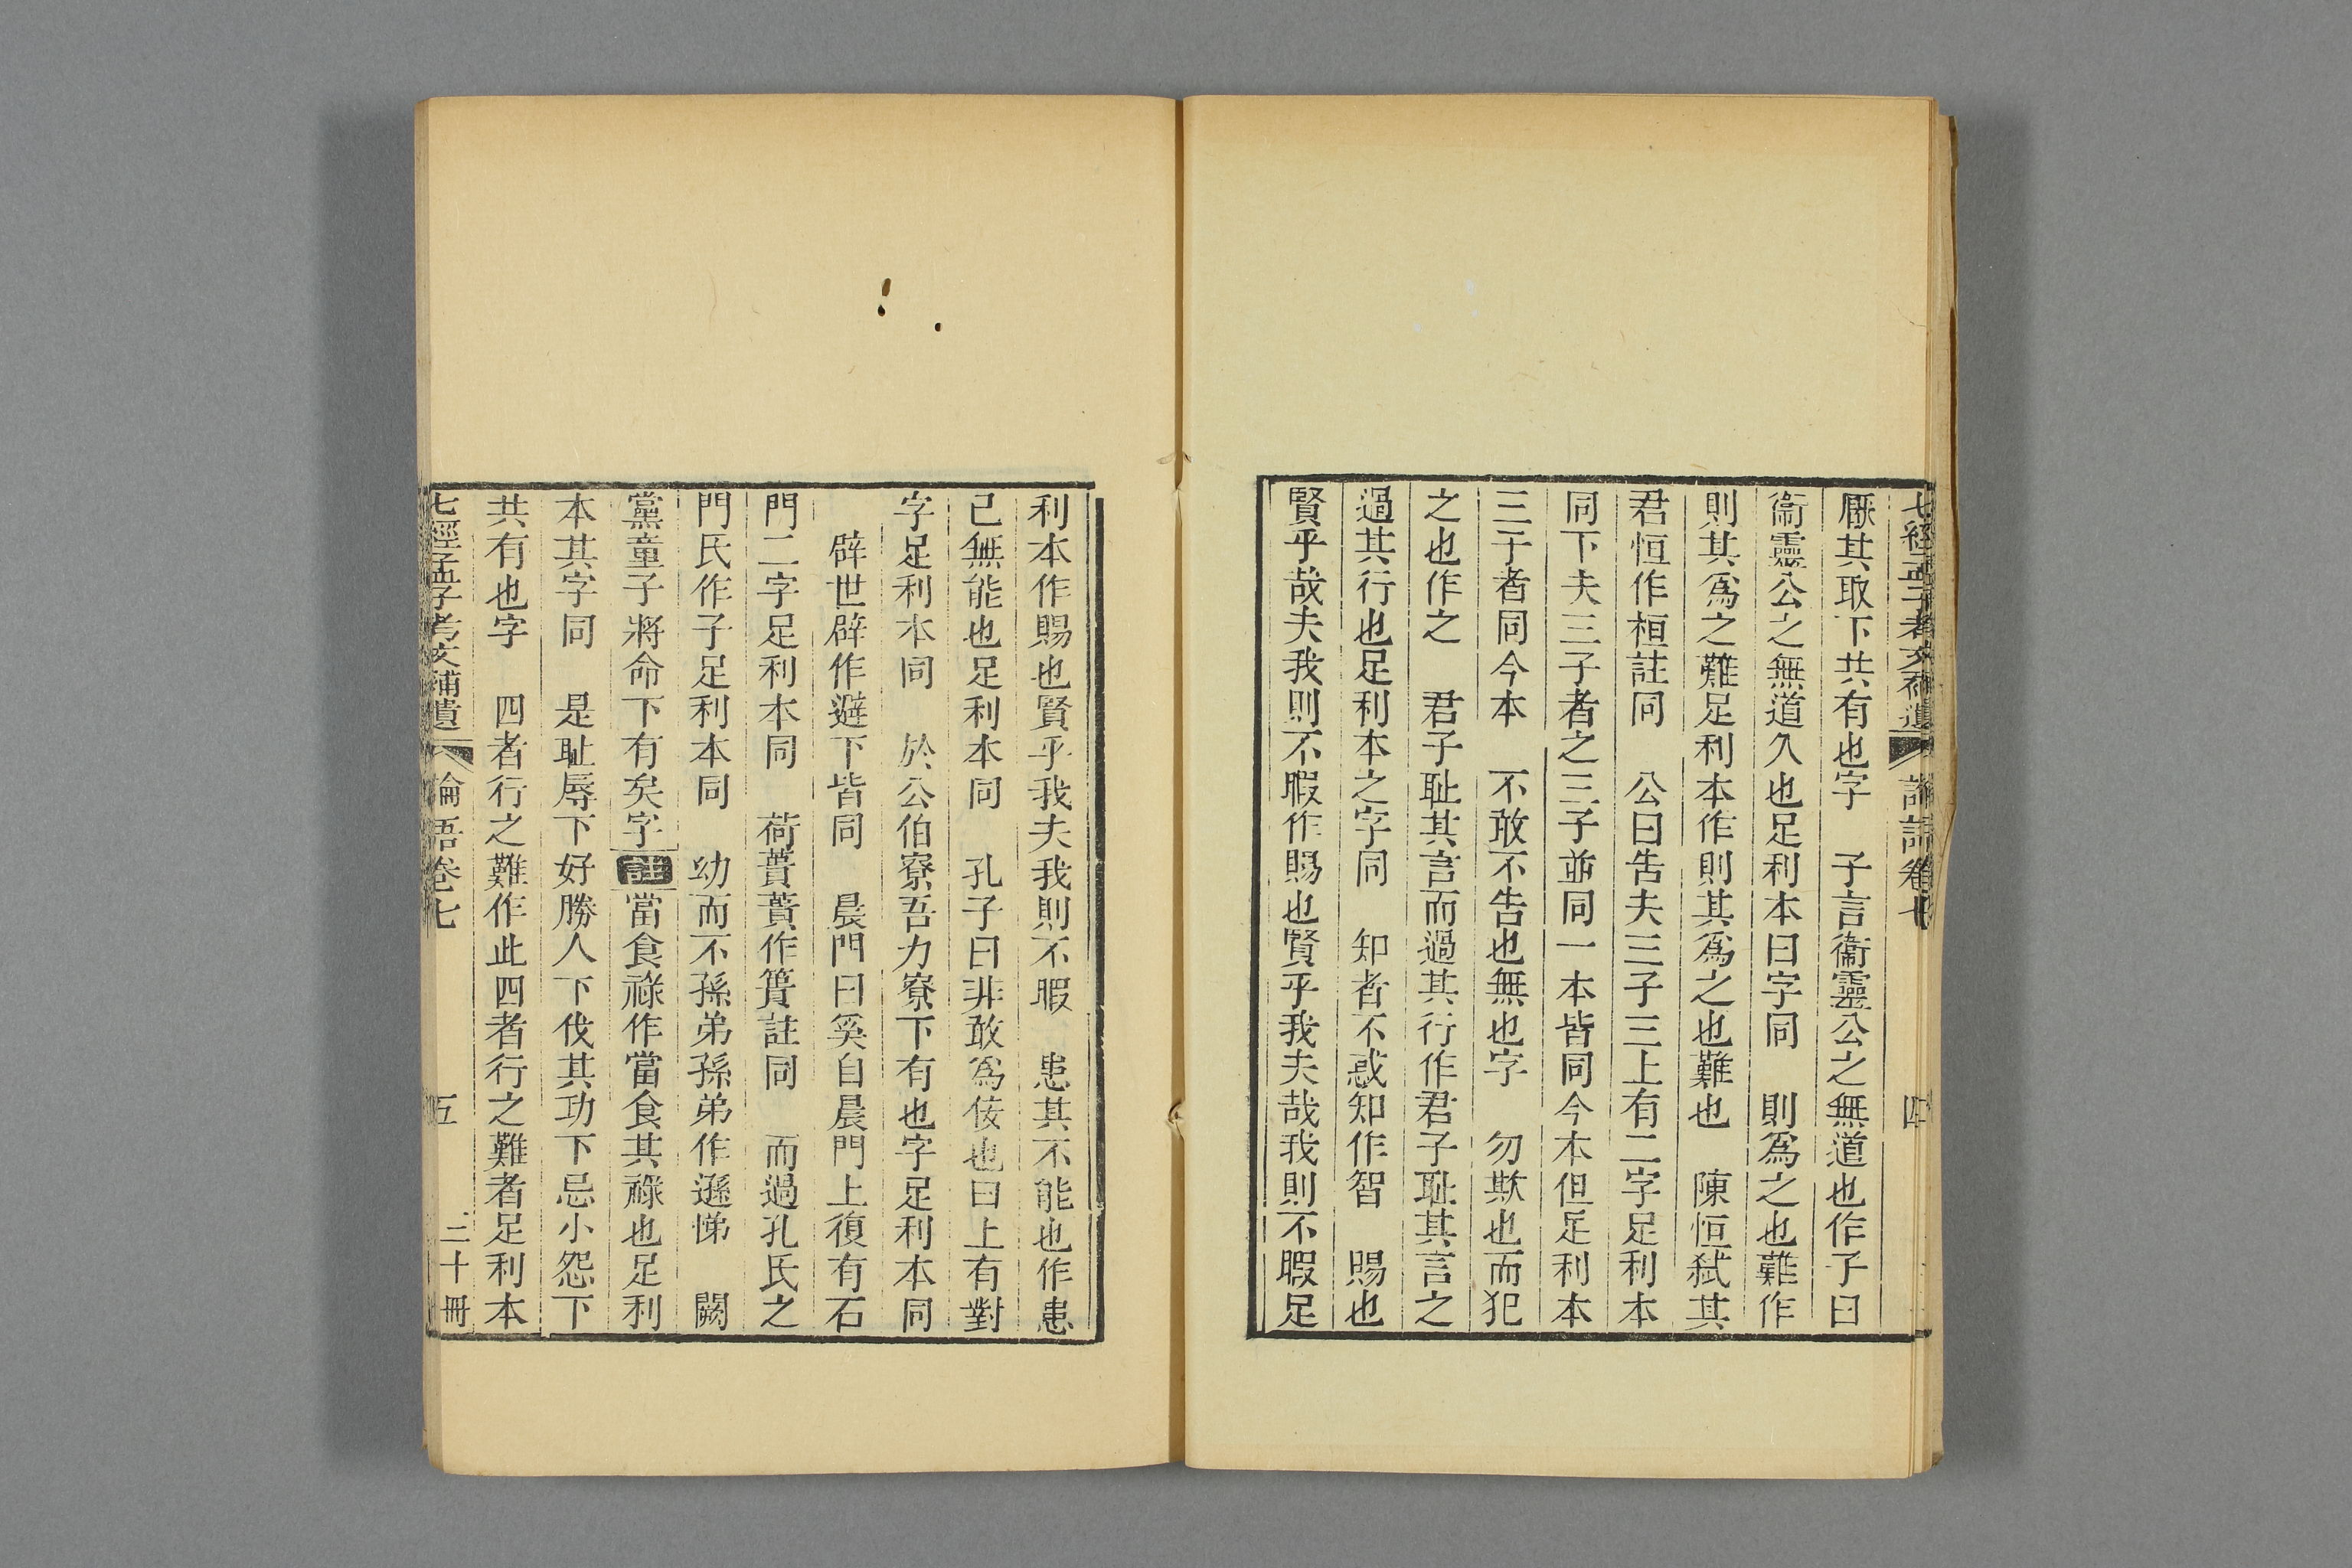 七經孟子考文補遺 論語卷七 四
厭其取下共有也字 子言衞靈公之無道也作子曰
衞靈公之無道久也足利本曰字同 則爲之也難作
則其爲之難足利本作則其爲之也難也 陳恒弑其
君恒作桓註同 公曰告夫三子三上有二字足利本
同下夫三子者之三子並同一本皆同今本但足利本
三子者同今本 不敢不告也無也字 勿欺也而犯
之也作之 君子耻其言而過其行作君子耻其言之
過其行也足利本之字同 知者不惑知作智 賜也
賢乎哉夫我則不暇作賜也賢乎我夫哉我則不暇足
利本作賜也賢乎我夫我則不暇 患其不能也作患
己無能也足利本同 孔子曰非敢爲佞也曰上有對
字足利本同 於公伯寮吾力寮下有也字足利本同
辟世辟作避下皆同 晨門曰奚自晨門上復有石
門二字足利本同 荷蕢蕢作簣註同 而過孔氏之
門氏作子足利本同 幼而不孫弟孫弟作遜悌 闕
黨童子將命下有矣字註當食祿作當食其祿也足利
本其字同 是耻辱下好勝人下伐其功下忌小怨下
共有也字 四者行之難作此四者行之難者足利本
七經孟子考文補遺 論語卷七 五 二十冊